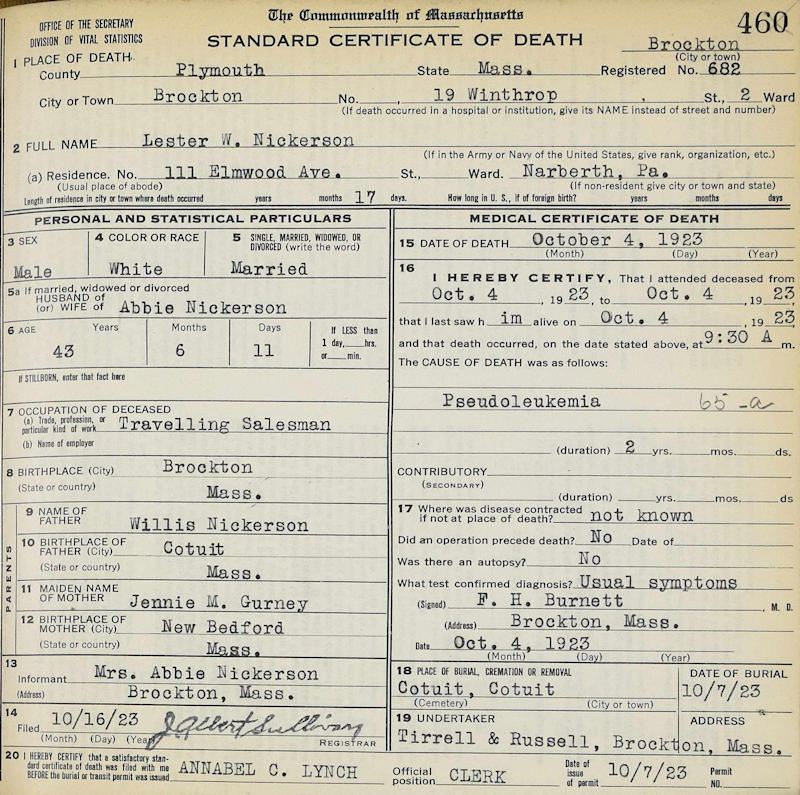 The Commonwealth of Massachusetts
460
OFFICE OF THE SECRETARY
DIVISION OF VITAL STATISTICS
STANDARD CERTIFICATE OF DEATH
Brockton
(City or town)
1 PLACE OF DEATH
County Plymouth State Mass. Registered No. 682
City or Town Brockton No. 19 Winthrop St., 2 Ward
(If death occurred in a hospital or institution, give its NAME instead of street and number)
2 FULL NAME Lester W. Nickerson
(If in the Army or Navy of the United States, give rank, organization, etc.)
(a) Residence. No. 111 Elmwood Ave. St., Ward. Narberth, Pa.
(Usual place of abode) (If non-resident give city or town and state)
Length of residence in city or town where death occurred years months 17 days. How long in U. S., if of foreign birth? years months days
PERSONAL AND STATISTICAL PARTICULARS
3 SEX
Male
4 COLOR OR RACE
White
5 SINGLE, MARRIED, WIDOWED, OR
DIVORCED (write the word)
Married
5a If married, widowed or divorced
HUSBAND of
(or) WIFE of Abbie Nickerson
6 AGE Years Months Days
43 6 11
If LESS than
1 day, hrs.
or min.
If STILLBORN, enter that fact here
7 OCCUPATION OF DECEASED
(a) Trade, profession, or
particular kind of work Travelling Salesman
(b) Name of employer
8 BIRTHPLACE (City) Brockton
(State or country) Mass.
PARENTS
9 NAME OF
FATHER Willis Nickerson
10 BIRTHPLACE OF
FATHER (City) Cotuit
(State or country) Mass.
11 MAIDEN NAME
OF MOTHER Jennie M. Gurney
12 BIRTHPLACE OF
MOTHER (City) New Bedford
(State or country) Mass.
13
Informant Mrs. Abbie Nickerson
(Address) Brockton, Mass.
14
Filed 10/16/23 J Albert Sullivan
(Month) (Day) (Year) REGISTRAR
MEDICAL CERTIFICATE OF DEATH
15 DATE OF DEATH October 4, 1923
(Month) (Day) (Year)
16
I HEREBY CERTIFY, That I attended deceased from
Oct. 4, 1923, to Oct. 4, 1923
that I last saw h im alive on Oct. 4, 1923
and that death occurred, on the date stated above, at 9:30 A m.
The CAUSE OF DEATH was as follows:
Pseudoleukemia 65-a
(duration) 2 yrs. mos. ds.
CONTRIBUTORY
(SECONDARY)
(duration) yrs. mos. ds
17 Where was disease contracted
if not at place of death? not known
Did an operation precede death? No Date of
Was there an autopsy? No
What test confirmed diagnosis? Usual symptoms
(Signed) F. H. Burnett, M. D.
(Address) Brockton, Mass.
Date Oct. 4, 1923
(Month) (Day) (Year)
18 PLACE OF BURIAL, CREMATION OR REMOVAL
Cotuit, Cotuit
(Cemetery) (City or town)
DATE OF BURIAL
10/7/23
19 UNDERTAKER ADDRESS
Tirrell & Russell, Brockton, Mass.
20 I HEREBY CERTIFY that a satisfactory stan-
dard certificate of death was filed with me
BEFORE the burial or transit permit was issued ANNABEL C. LYNCH
Official
position CLERK
Date of
issue
of permit 10/7/23
Permit
NO.